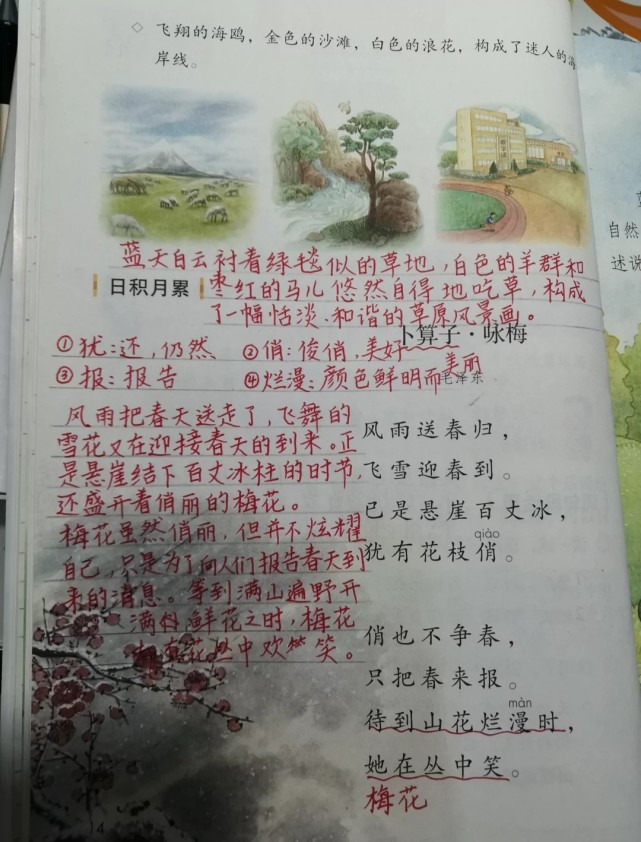 ◇ 飞翔的海鸥，金色的沙滩，白色的浪花，构成了迷人的海
岸线。
蓝天白云衬着绿毯似的草地，白色的羊群和
日积月累
枣红的马儿悠然自得地吃草，构成
了一幅恬淡、和谐的草原风景画。
卜算子·咏梅
①犹：还，仍然 ②俏：俊俏，美好
美丽
③报：报告 ④烂漫：颜色鲜明而
毛泽东
风雨把春天送走了，飞舞的
雪花又在迎接春天的到来。正
是悬崖结下百丈冰柱的时节，
还盛开着俏丽的梅花。
梅花虽然俏丽，但并不炫耀
自己，只是为了向人们报告春天到
来的消息。等到满山遍野开
满 鲜花之时，梅花
花丛中欢 笑。
风雨送春归，
飞雪迎春到。
已是悬崖百丈冰，
qiào
犹有花枝俏。
俏也不争春，
只把春来报。
màn
待到山花烂漫时，
她在丛中笑。
梅花
自然
述说